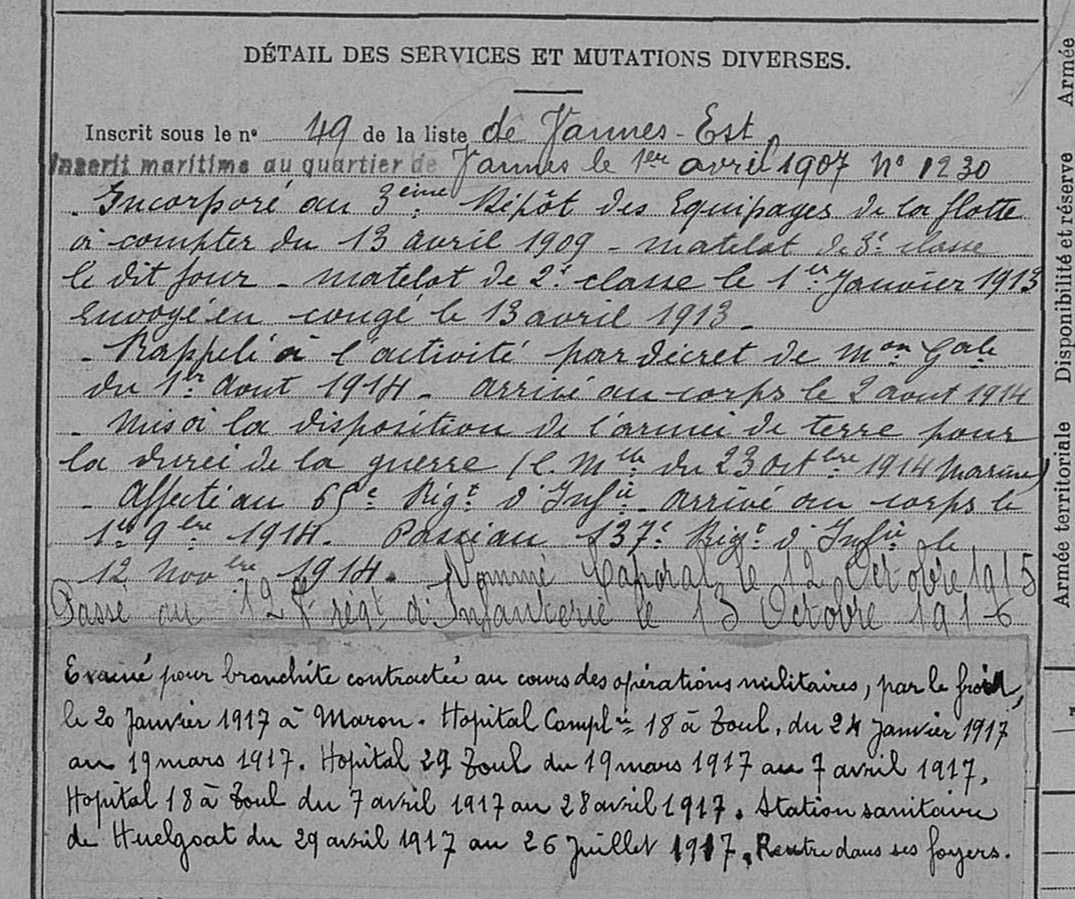 DÉTAIL DES SERVICES ET MUTATIONS DIVERSES.
Inscrit sous le n° 49 de la liste de Vannes-Est
Inscrit maritime au quartier de Vannes le 1er avril 1907 N° 1230
Incorporé au 3ème Dépôt des Equipages de la flotte
à compter du 13 avril 1909 - matelot de 3e classe
le dit jour - matelot de 2e classe le 1er Janvier 1913
Envoyé en congé le 13 avril 1913.
- Rappelé à l'activité par décret de Mon Gale
du 1er Aout 1914. arrivé au corps le 2 aout 1914
- Mis à la disposition de l'armée de terre pour
la durée de la guerre (C. Mlle du 23 Octbre 1914 Marine)
- Affecté au 65e Régt d'Infie arrivé au corps le
1er 9bre 1914. Passé au 137e Régt d'Infie le
12 Novbre 1914. Nommé Caporal le 12 Octobre 1915
Passé au régt d'Infanterie le 13 Octobre 1916
Evacué pour bronchite contractée au cours des opérations militaires, par le froid,
le 20 Janvier 1917 à Maron. Hopital Complre 18 à Toul, du 24 Janvier 1917
au 19 mars 1917. Hopital 29 Toul du 19 mars 1917 au 7 avril 1917,
Hopital 18 à Toul du 7 avril 1917 au 28 avril 1917. Station sanitaire
de Huelgoat du 29 avril 1917 au 26 Juillet 1917. Rentre dans ses foyers.
Armée
Disponibilité et réserve
Armée territoriale